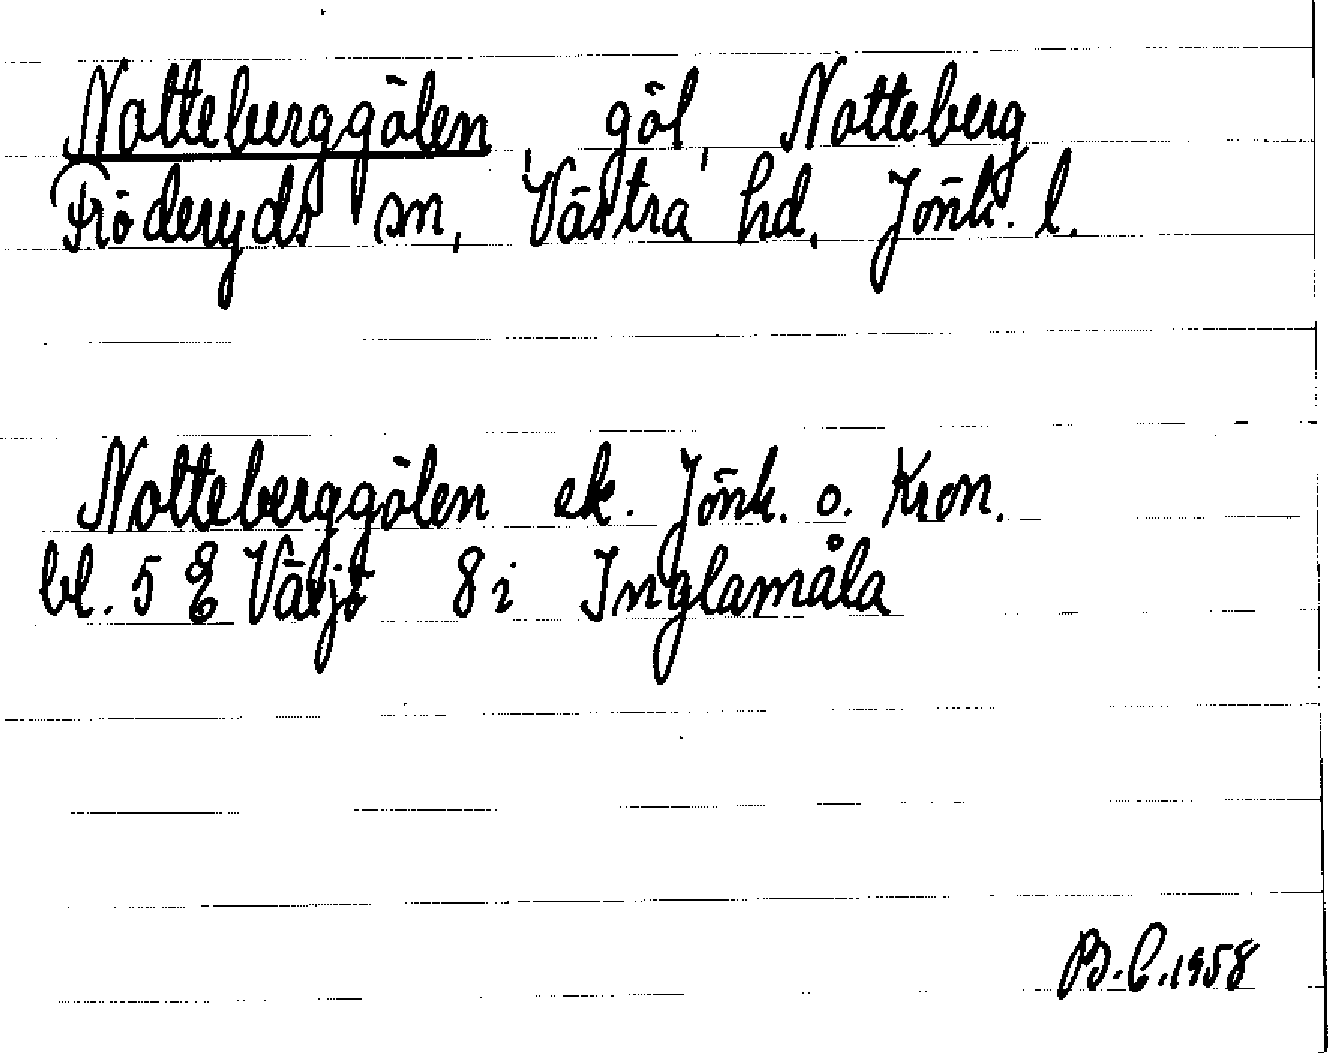 Notteberggölen, göl, Notteberg
Fröderyds sn, Västra hd. Jönk. l.
Notteberggölen ek. Jönk. o. Kron.
bl. 5 E Växjö 8 i Inglamåla
B.C.1958